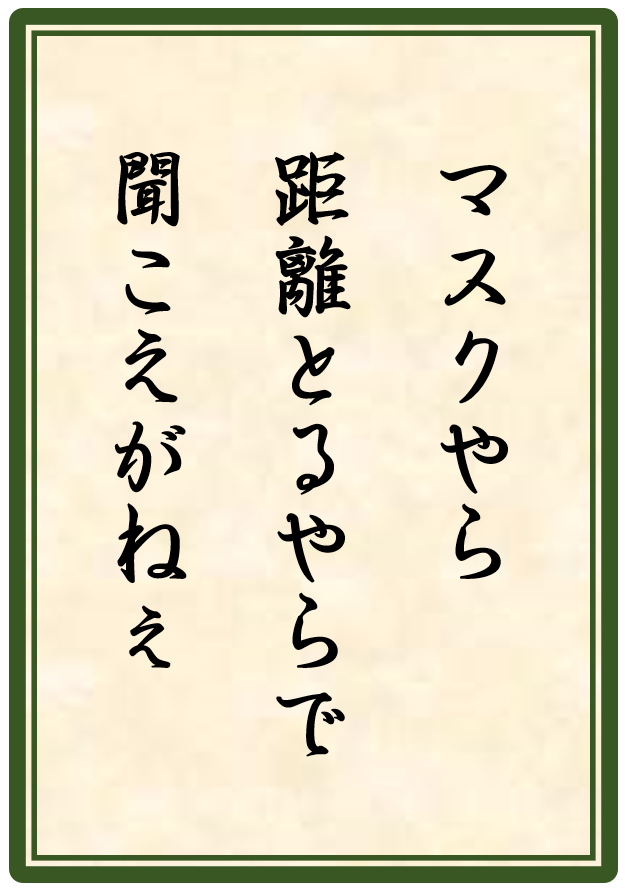 マスクやら
距離とるやらで
聞こえがねぇ